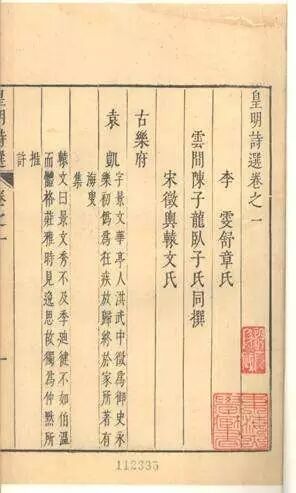 皇明詩選卷之一
李 雯舒章氏
雲間陳子龍臥子氏同撰
宋徵輿轅文氏
古樂府
袁 凱
字景文華亭人洪武中徵為御史永
樂初偽為狂疾放歸終於家所著有
海叟
集
轅文曰景文秀不及季迪健不如伯溫
而體格莊雅時見逸思故獨為仲默所
推
許
皇明詩選 卷之一
112335